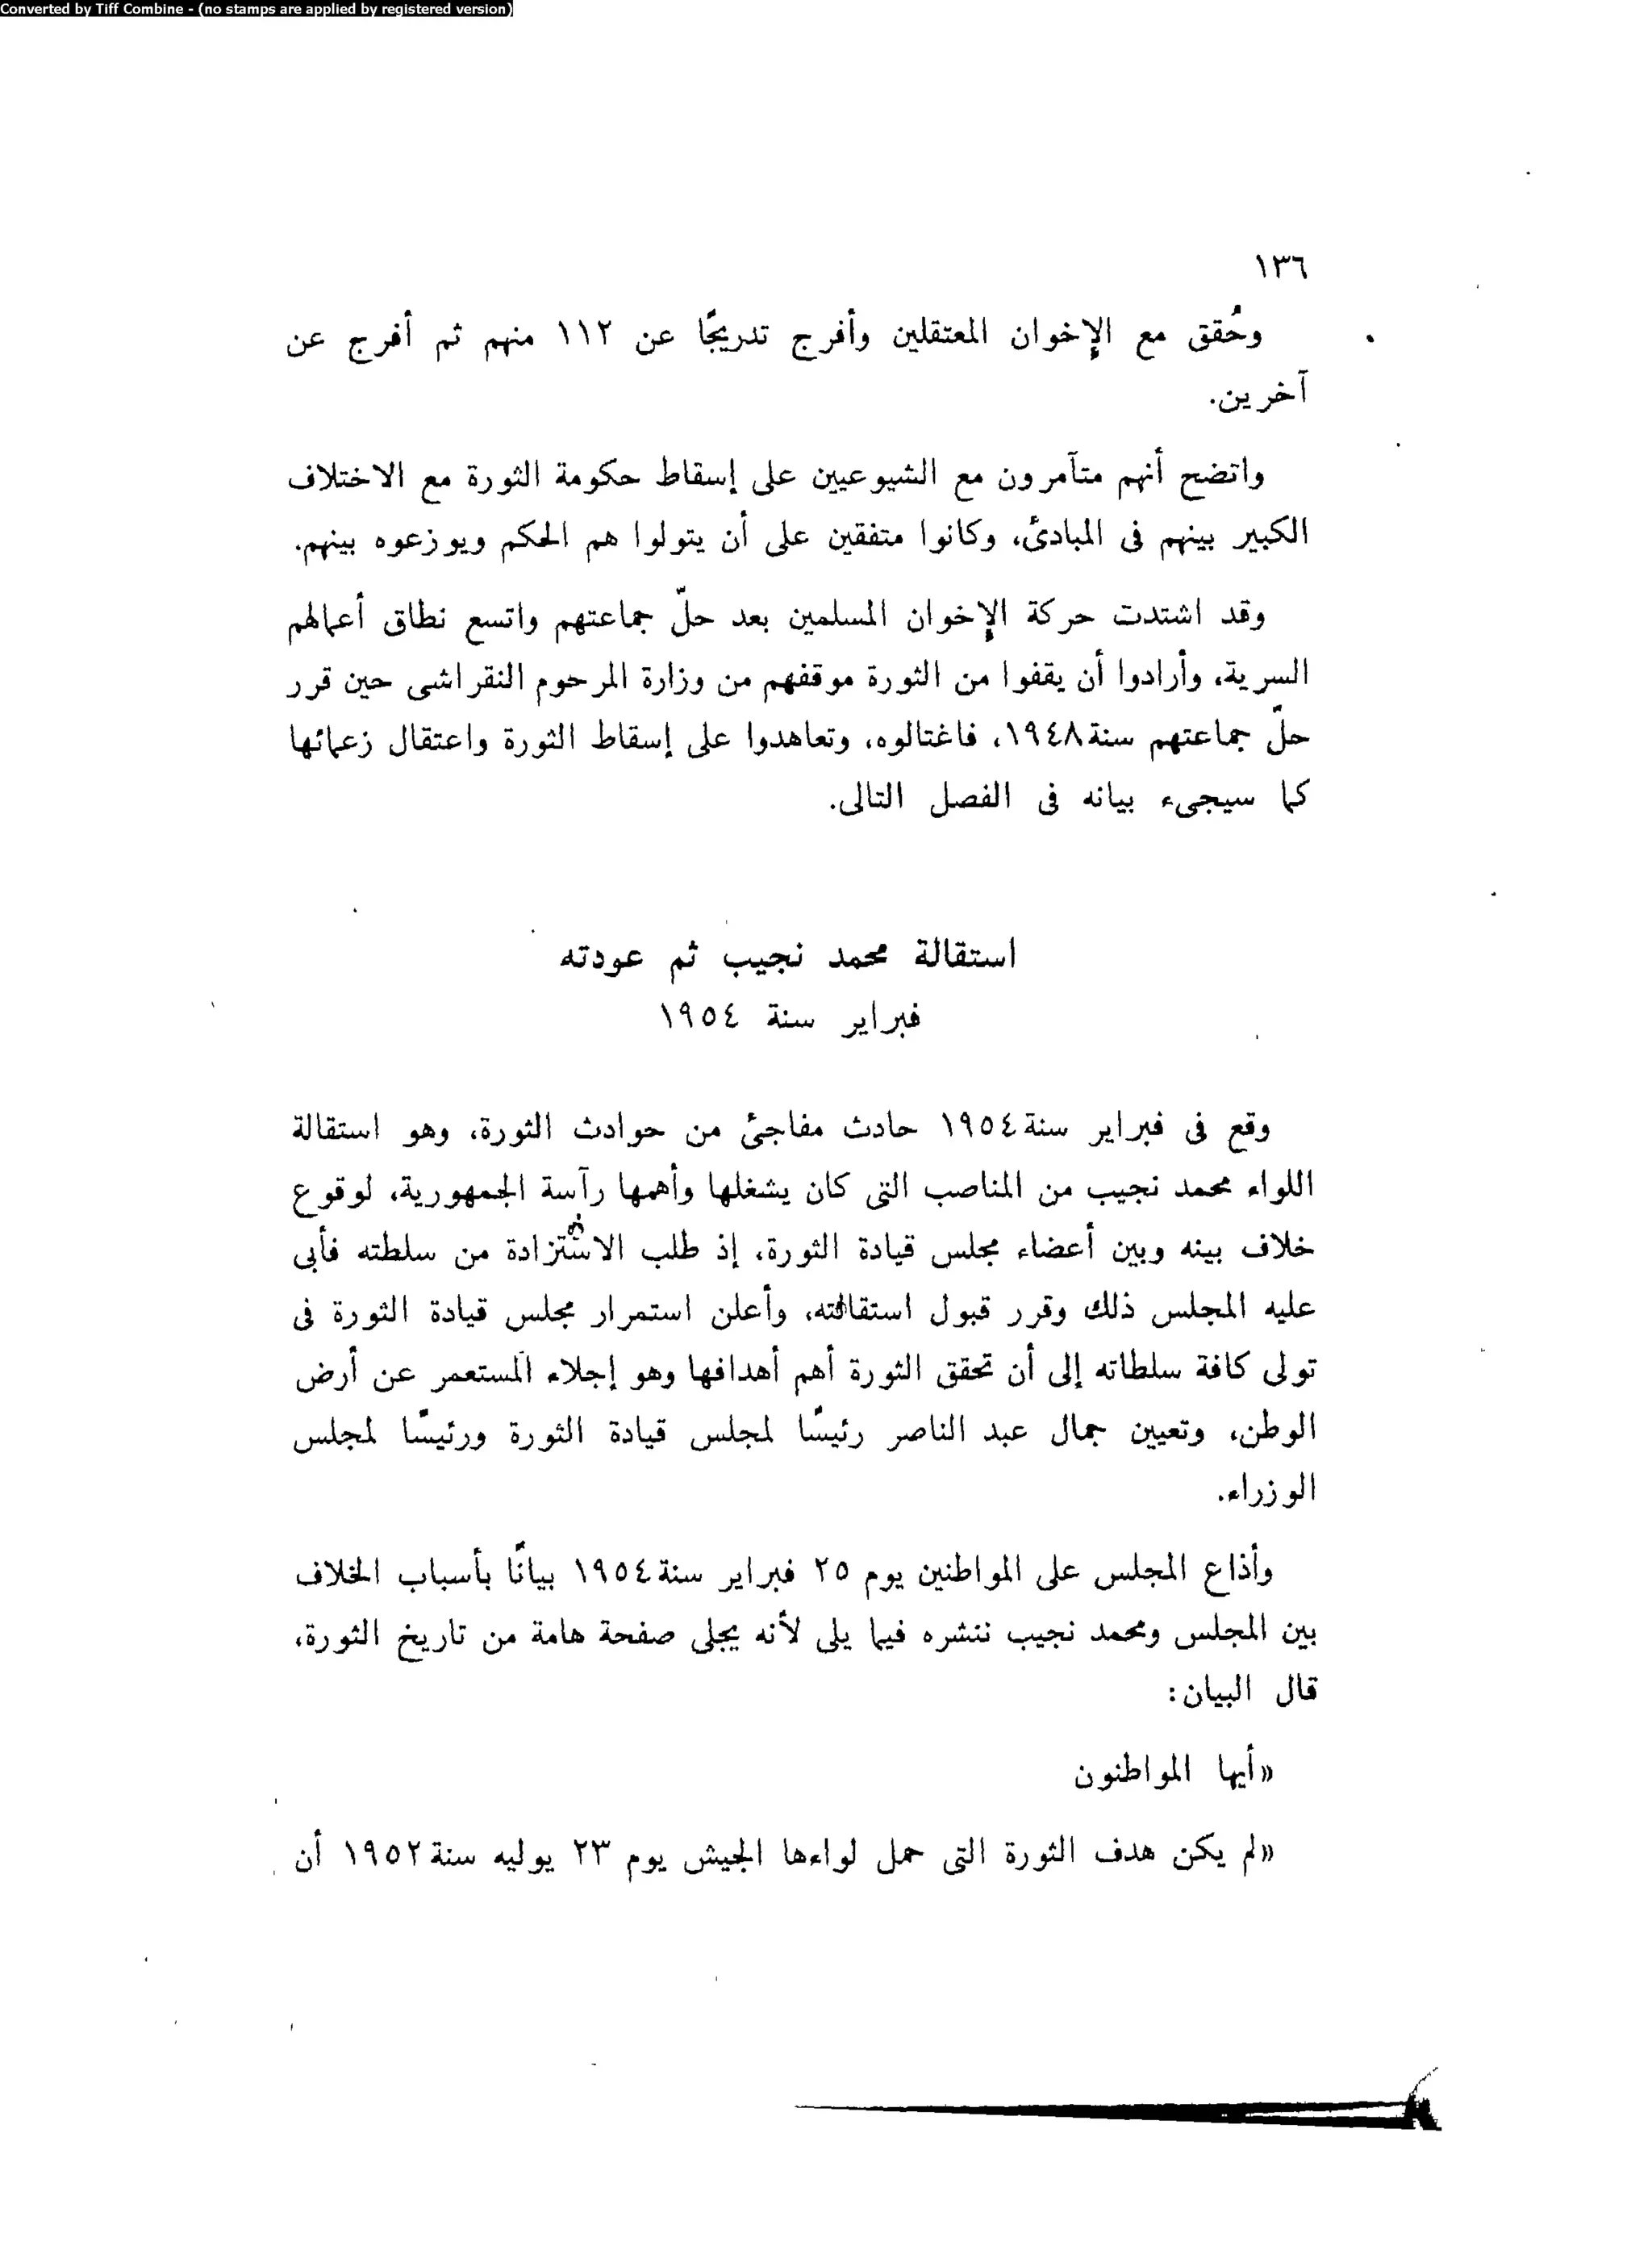 Converted by Tiff Combine - (no stamps are applied by registered version)
١٣٦
وحُقق مع الإخوان المعتقلين وأفرج تدريجًا عن ١١٢ منهم ثم أفرج عن
آخرين.
واتضح أنهم متآمرون مع الشيوعيين على إسقاط حكومة الثورة مع الاختلاف
الكبير بينهم فى المبادئ، وكانوا متفقين على أن يتولوا هم الحكم ويوزعوه بينهم.
وقد اشتدت حركة الإخوان المسلمين بعد حلّ جماعتهم واتسع نطاق أعمالهم
السرية، وأرادوا أن يقفوا من الثورة موقفهم من وزارة المرحوم النقراشى حين قرر
حلّ جماعتهم سنة ١٩٤٨، فاغتالوه، وتعاهدوا على إسقاط الثورة واعتقال زعمائها
كما سيجىء بيانه فى الفصل التالى.
استقالة محمد نجيب ثم عودته
فبراير سنة ١٩٥٤
وقع فى فبراير سنة ١٩٥٤ حادث مفاجئ من حوادث الثورة، وهو استقالة
اللواء محمد نجيب من المناصب التى كان يشغلها وأهمها رآسة الجمهورية، لوقوع
خلاف بينه وبين أعضاء مجلس قيادة الثورة، إذ طلب الاستزادة من سلطته فأبى
عليه المجلس ذلك وقرر قبول استقالته، وأعلن استمرار مجلس قيادة الثورة فى
تولى كافة سلطاته إلى أن تحقق الثورة أهم أهدافها وهو إجلاء المستعمر عن أرض
الوطن، وتعيين جمال عبد الناصر رئيسًا لمجلس قيادة الثورة ورئيسًا لمجلس
الوزراء.
وأذاع المجلس على المواطنين يوم ٢٥ فبراير سنة ١٩٥٤ بيانًا بأسباب الخلاف
بين المجلس ومحمد نجيب ننشره فيما يلى لأنه يجلى صفحة هامة من تاريخ الثورة،
قال البيان:
«أيها المواطنون
«لم يكن هدف الثورة التى حمل لواءها الجيش يوم ٢٣ يوليه سنة ١٩٥٢ أن